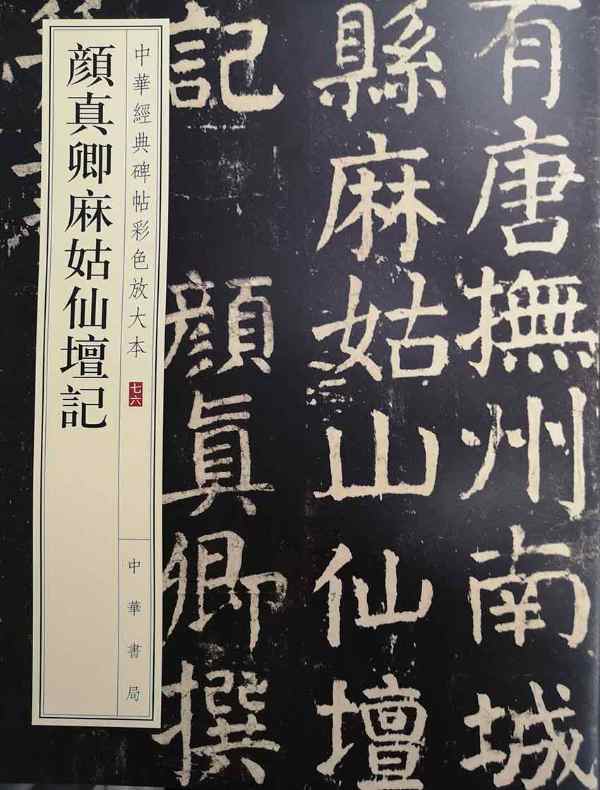 有唐撫州南城
縣麻姑山仙壇
記 顏眞卿撰
中華經典碑帖彩色放大本 七六
中華書局
顏真卿麻姑仙壇記